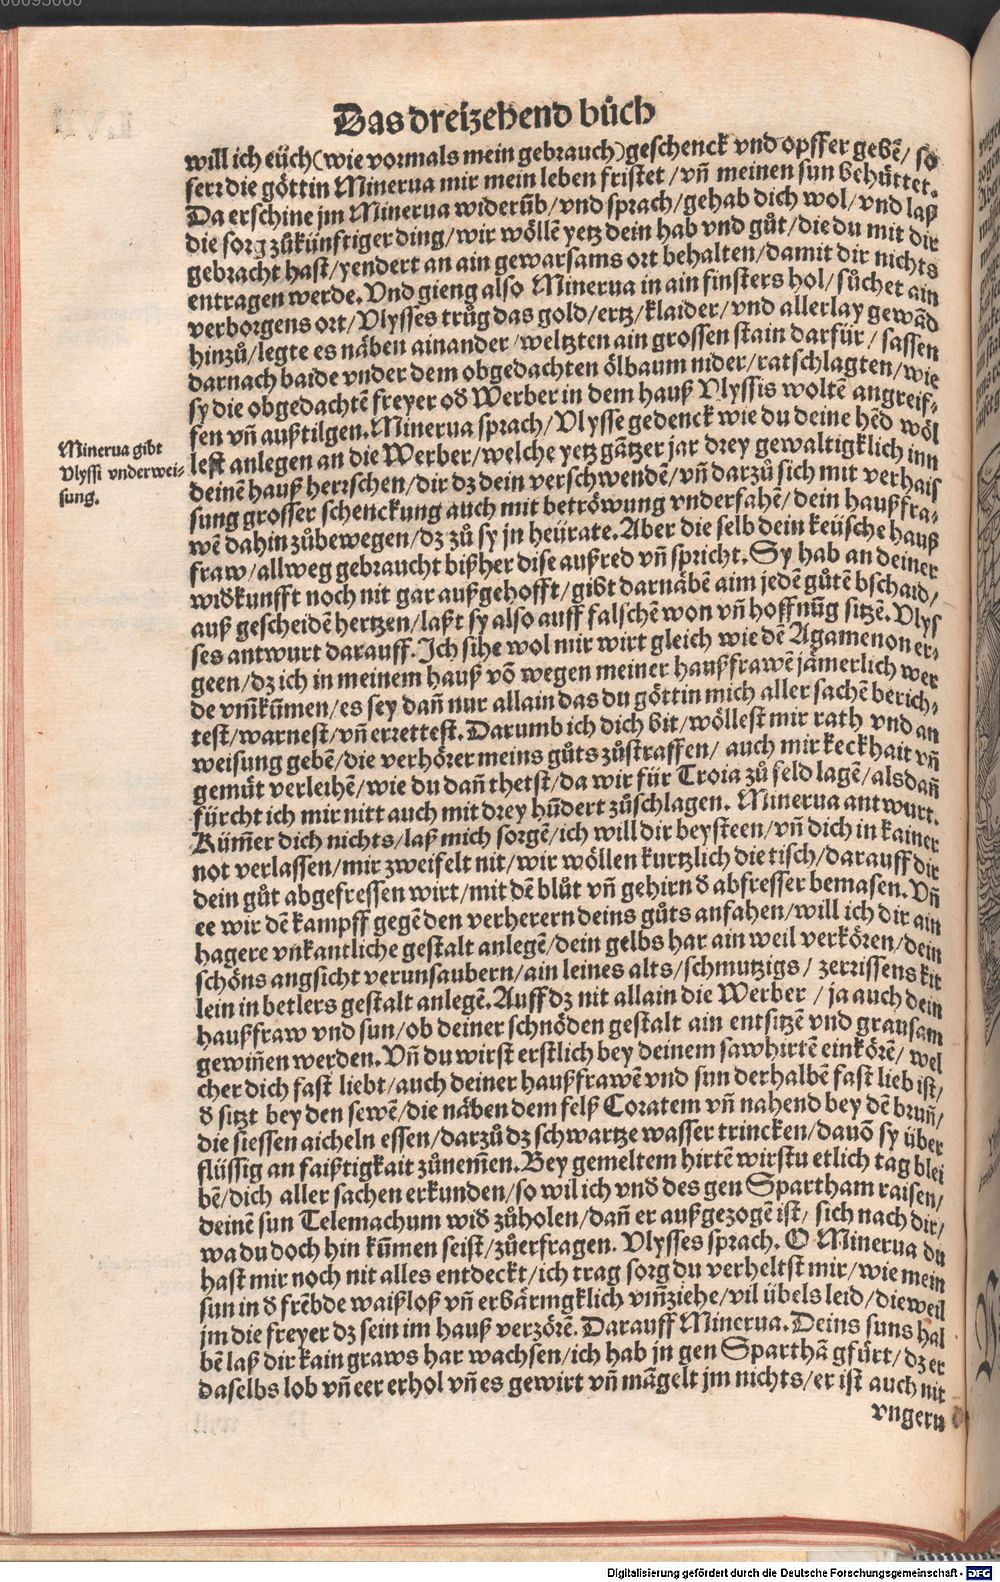 00095060
Das dreizehend bůch
will ich eüch (wie vormals mein gebrauch) geschenck vnd opffer gebẽ/ so
ferr die göttin Minerua mir mein leben fristet/ vñ meinen sun behüttet.
Da erschine jm Minerua widerũb/ vnd sprach/ gehab dich wol/ vnd laß
die sorg zůkünftiger ding/ wir wöllẽ yetz dein hab vnd gůt/ die du mit dir
gebracht hast/ yendert an ain gewarsams ort behalten/ damit dir nichts
entragen werde. Vnd gieng also Minerua in ain finsters hol/ sůchet ain
verborgens ort/ Vlysses trůg das gold/ ertz/ klaider/ vnd allerlay gewãd
hinzů/ legte es näben ainander/ weltzten ain grossen stain darfür/ sassen
darnach baide vnder dem obgedachten ölbaum nider/ ratschlagten/ wie
sy die obgedachtẽ freyer oď Werber in dem hauß Vlyssis woltẽ angreif-
fen vñ außtilgen. Minerua sprach/ Vlysse gedenck wie du deine hẽd wöl
lest anlegen an die Werber/ welche yetz gãtzer jar drey gewaltigklich inn
Minerua gibt
Vlyssi vnderwei-
sung.
deinẽ hauß herrschen/ dir dz dein verschwendẽ/ vñ darzů sich mit verhais
sung grosser schenckung auch mit betröwung vnderfahẽ/ dein haußfra-
wẽ dahin zůbewegen/ dz zů sy jn heürate. Aber die selb dein keüsche hauß
fraw/ allweg gebraucht bißher dise außred vñ spricht. Sy hab an deiner
wiďkunfft noch nit gar außgehofft/ gibt darnäbẽ aim jedẽ gůtẽ bschaid/
auß gescheidẽ hertzen/ laßt sy also auff falschẽ won vñ hoffnũg sitzẽ. Vlys
ses antwurt darauff. Ich sihe wol mir wirt gleich wie dẽ Agamenon er-
geen/ dz ich in meinem hauß võ wegen meiner haußfrawẽ jämerlich wer
de vm̃küm̃en/ es sey dañ nur allain das du göttin mich aller sachẽ berich-
test/ warnest/ vñ errettest. Darumb ich dich bit/ wöllest mir rath vnd an
weisung gebẽ/ die verhörer meins gůts zůstraffen/ auch mir keckhait vñ
gemüt verleihẽ/ wie du dañ thetst/ da wir für Troia zů feld lagẽ/ als dañ
fürcht ich mir nitt auch mit drey hũdert zůschlagen. Minerua antwurt.
Küm̃er dich nichts/ laß mich sorgẽ/ ich will dir beysteen/ vñ dich in kainer
not verlassen/ mir zweifelt nit/ wir wöllen kurtzlich die tisch/ darauff dir
dein gůt abgefressen wirt/ mit dẽ blůt vñ gehirn ď abfresser bemasen. Vñ
ee wir dẽ kampff gegẽ den verherern deins gůts anfahen/ will ich dir ain
hagere vnkantliche gestalt anlegẽ/ dein gelbs har ain weil verkören/ dein
schöns angsicht verunsaubern/ ain leines alts/ schmutzigs/ zerrissens kit
lein in betlers gestalt anlegẽ. Auff dz nit allain die Werber/ ja auch dein
haußfraw vnd sun/ ob deiner schnöden gestalt ain entsitzẽ vnd grausam
gewiñen werden. Vñ du wirst erstlich bey deinem sawhirtẽ einkörẽ/ wel
cher dich fast liebt/ auch deiner haußfrawẽ vnd sun derhalbẽ fast lieb ist/
ď sitzt bey den sewẽ/ die näben dem felß Coratem vñ nahend bey dẽ bruñ/
die siessen aicheln essen/ darzů dz schwartze wasser trincken/ dauõ sy über
flüssig an faißtigkait zůnem̃en. Bey gemeltem hirtẽ wirstu etlich tag blei
bẽ/ dich aller sachen erkunden/ so wil ich vnď des gen Spartham raisen/
deinẽ sun Telemachum wiď zůholen/ dañ er außgezogẽ ist/ sich nach dir/
wa du doch hin küm̃en seist/ zůerfragen. Vlysses sprach. O Minerua du
hast mir noch nit alles entdeckt/ ich trag sorg du verheltst mir/ wie mein
sun in ď frẽbde waißloß vñ erbärmgklich vm̃ziehe/ vil übels leid/ dieweil
jm die freyer dz sein im hauß verzörẽ. Darauff Minerua. Deins suns hal
bẽ laß dir kain graws har wachsen/ ich hab jn gen Sparthã gfürt/ dz er
daselbs lob vñ eer erhol vñ es gewirt vñ mãgelt jm nichts/ er ist auch nit
vngern
Digitalisierung gefördert durch die Deutsche Forschungsgemeinschaft - DFG